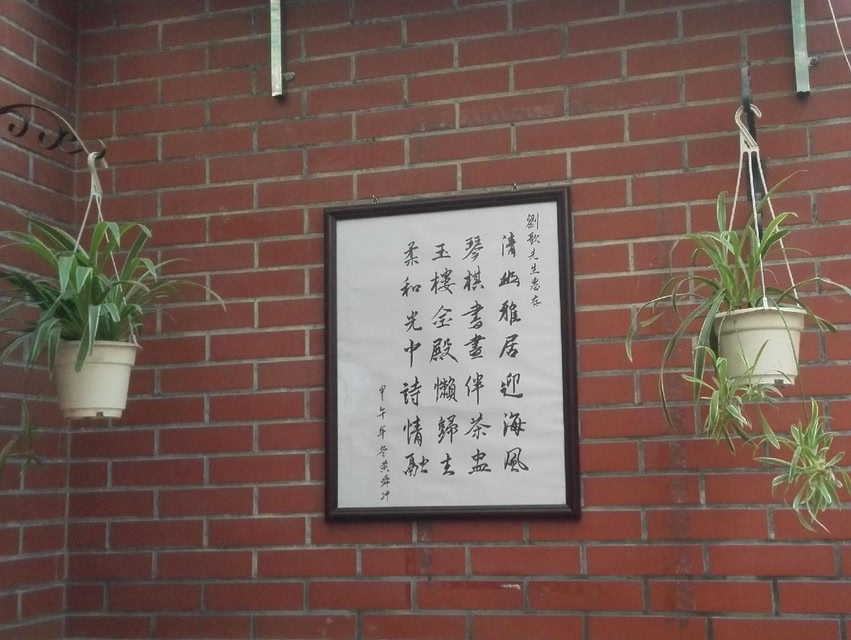 劉歌先生惠存
清幽雅居迎海風
琴棋書畫伴茶盅
玉樓金殿懶歸去
柔和光中詩情融
甲午年冬黄舜冲